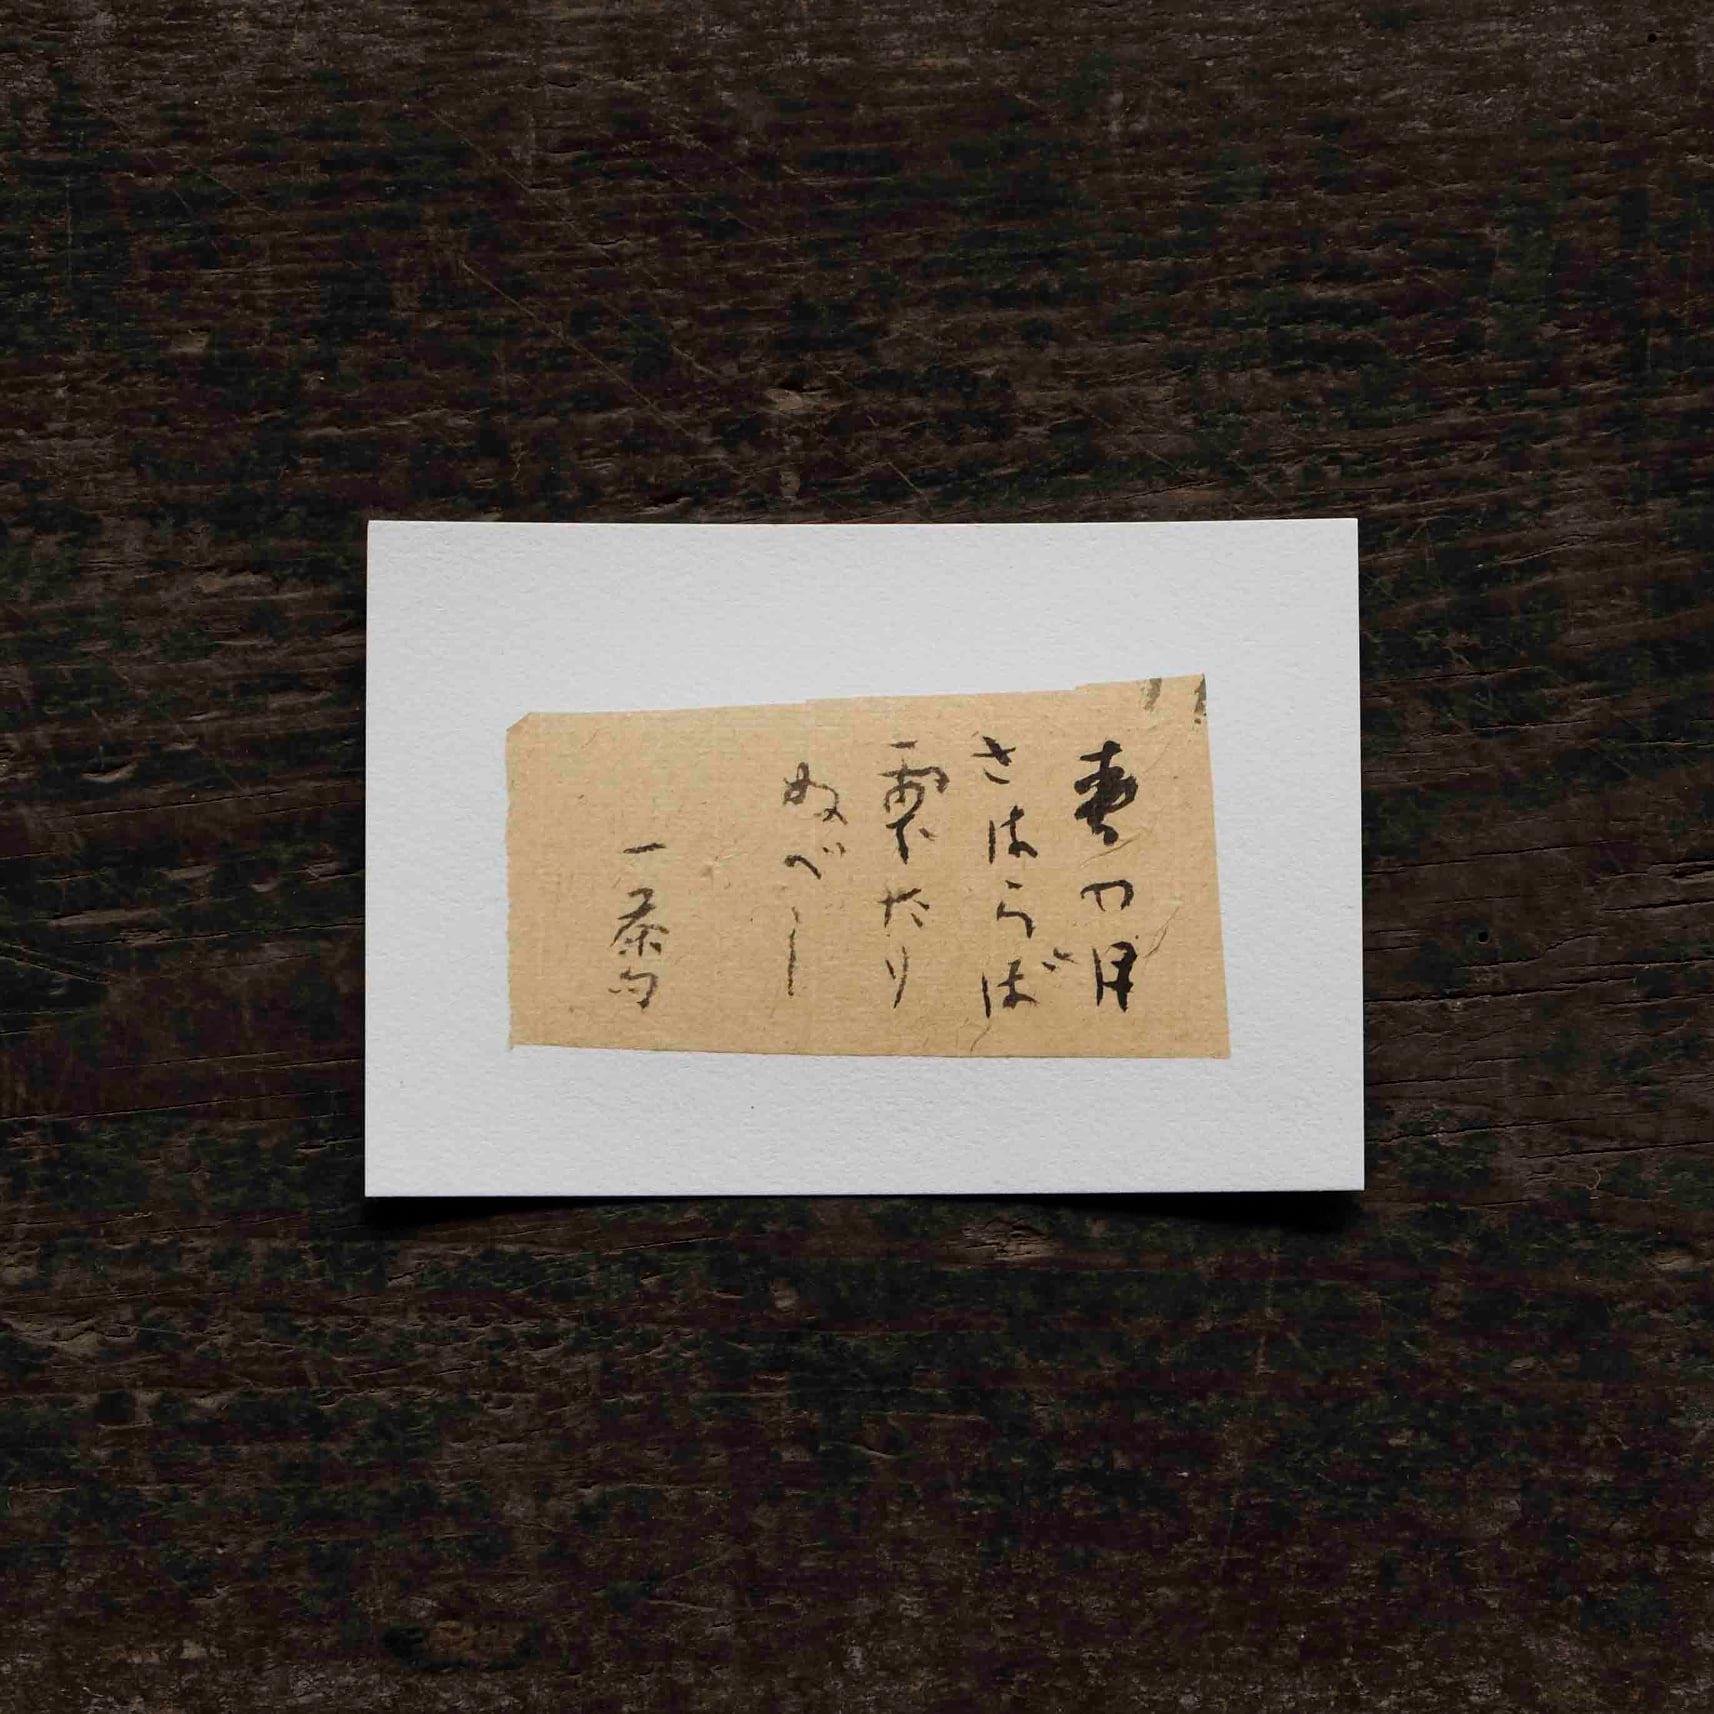 春の月
さはらば
雫たり
ぬべし
一茶句